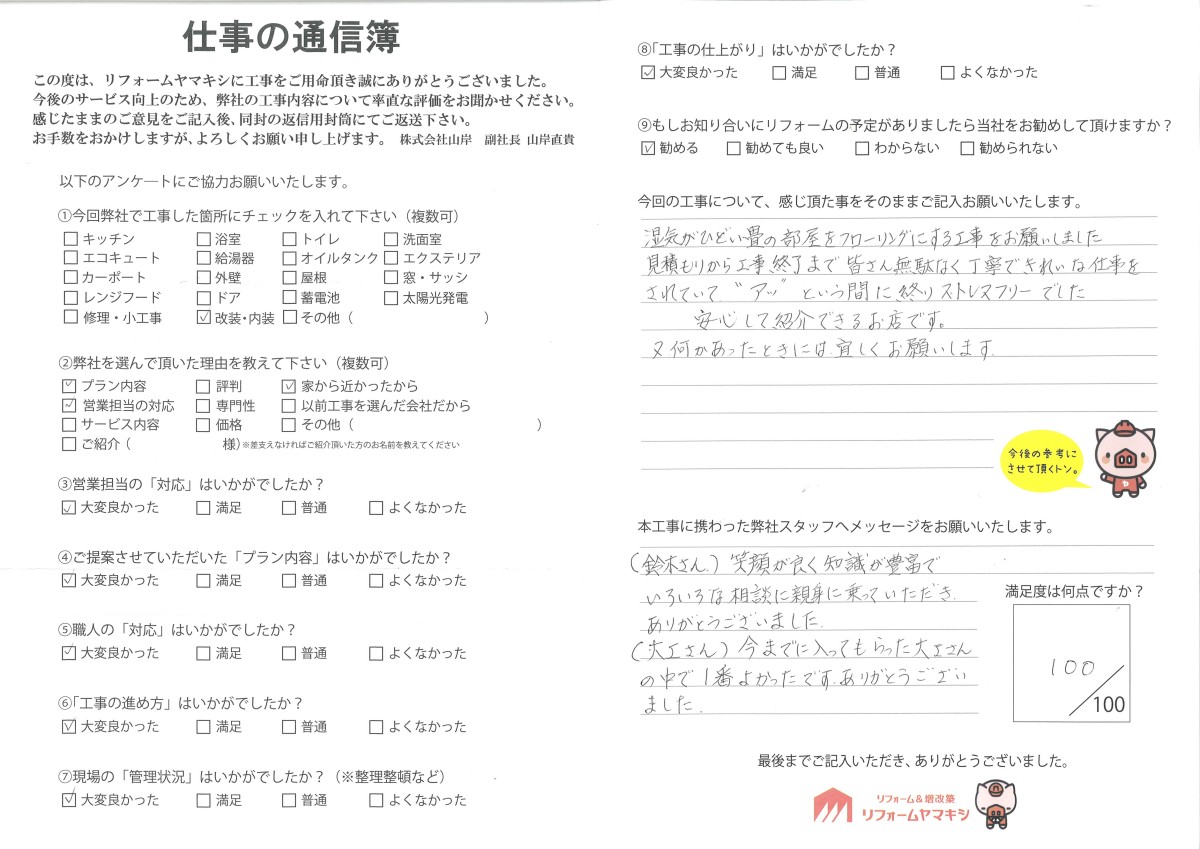 仕事の通信簿
この度は、リフォームヤマキシに工事をご用命頂き誠にありがとうございました。
今後のサービス向上のため、弊社の工事内容について率直な評価をお聞かせください。
感じたままのご意見をご記入後、同封の返信用封筒にてご返送下さい。
お手数をおかけしますが、よろしくお願い申し上げます。 株式会社山岸 副社長 山岸直貴
以下のアンケートにご協力お願いいたします。
①今回弊社で工事した箇所にチェックを入れて下さい（複数可）
□ キッチン □ 浴室 □ トイレ □ 洗面室
□ エコキュート □ 給湯器 □ オイルタンク □ エクステリア
□ カーポート □ 外壁 □ 屋根 □ 窓・サッシ
□ レンジフード □ ドア □ 蓄電池 □ 太陽光発電
□ 修理・小工事 ☑ 改装・内装 □ その他（ ）
②弊社を選んで頂いた理由を教えて下さい（複数可）
☑ プラン内容 □ 評判 ☑ 家から近かったから
☑ 営業担当の対応 □ 専門性 □ 以前工事を選んだ会社だから
□ サービス内容 □ 価格 □ その他（ ）
□ ご紹介（ 様）※差支えなければご紹介頂いた方のお名前を教えてください
③営業担当の「対応」はいかがでしたか？
☑ 大変良かった □ 満足 □ 普通 □ よくなかった
④ご提案させていただいた「プラン内容」はいかがでしたか？
☑ 大変良かった □ 満足 □ 普通 □ よくなかった
⑤職人の「対応」はいかがでしたか？
☑ 大変良かった □ 満足 □ 普通 □ よくなかった
⑥「工事の進め方」はいかがでしたか？
☑ 大変良かった □ 満足 □ 普通 □ よくなかった
⑦現場の「管理状況」はいかがでしたか？（※整理整頓など）
☑ 大変良かった □ 満足 □ 普通 □ よくなかった
⑧「工事の仕上がり」はいかがでしたか？
☑ 大変良かった □ 満足 □ 普通 □ よくなかった
⑨もしお知り合いにリフォームの予定がありましたら当社をお勧めして頂けますか？
☑ 勧める □ 勧めても良い □ わからない □ 勧められない
今回の工事について、感じ頂た事をそのままご記入お願いいたします。
湿気がひどい畳の部屋をフローリングにする工事をお願いしました
見積もりから工事終了まで皆さん無駄なく丁寧できれいな仕事を
されていて〝アッ〟という間に終りストレスフリーでした
安心して紹介できるお店です。
又何かあったときには宜しくお願いします.
今後の参考に
させて頂くトン。
本工事に携わった弊社スタッフへメッセージをお願いいたします。
(鈴木さん) 笑顔が良く知識が豊富で
いろいろな相談に親身に乗っていただき.
ありがとうございました.
(大工さん) 今までに入ってもらった大工さん
の中で1番よかったです.ありがとうござい
ました.
満足度は何点ですか？
100/100
最後までご記入いただき、ありがとうございました。
リフォーム&増改築
リフォームヤマキシ